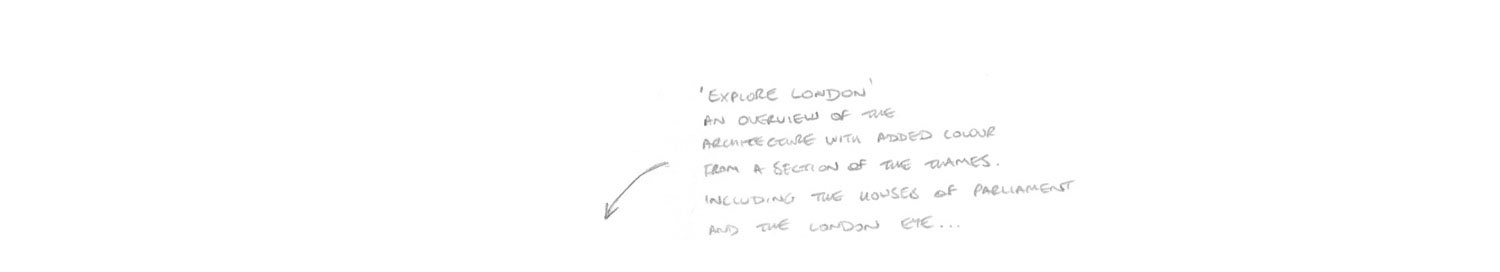 'EXPLORE LONDON'
AN OVERVIEW OF THE
ARCHITECTURE WITH ADDED COLOUR
FROM A SECTION OF THE THAMES.
INCLUDING THE HOUSES OF PARLIAMENT
AND THE LONDON EYE...